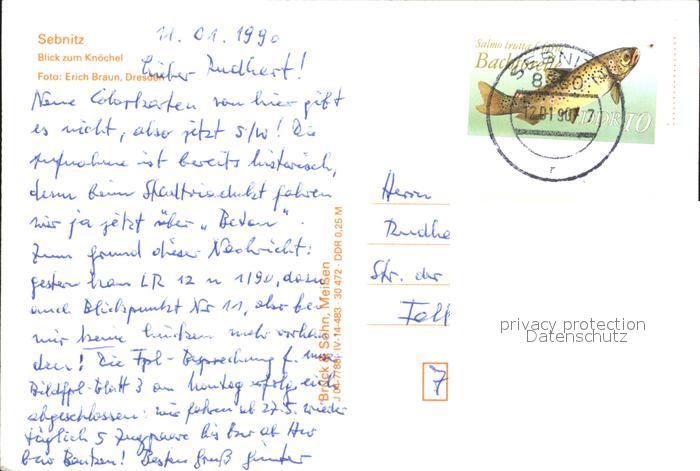 Sebnitz
Blick zum Knöchel
Foto: Erich Braun, Dresden
11.01.1990
Lieber Rudhert!
Neue Colorkarten von hier gibt
es nicht, also jetzt s/w! Die
Aufnahme ist bereits historisch,
denn beim Stadtviadukt fahren
wir ja jetzt über „Beton".
Zum Grund dieser Nachricht:
gestern kam LR 12 u 1/90, dazu
auch Blickpunkt Nr 11, also bei
mir keine Lücken mehr vorhan
den! Die Fpl-Besprechung f.
Bildfpl-Blatt 3 am Montag erfolgreich
abgeschlossen: wir fahren ab 27.5. wieder
täglich 5 Zugpaare bis bzw ab
bzw Bautzen! Besten Gruß Günter
Brück & Sohn, Meißen
IV-14-483 · 30 472 · DDR 0,25 M
Salmo trutta f. fario
Bachforelle
DDR 10
SEBNITZ
12.01.90
Herrn
Str. der
7
privacy protection
Datenschutz